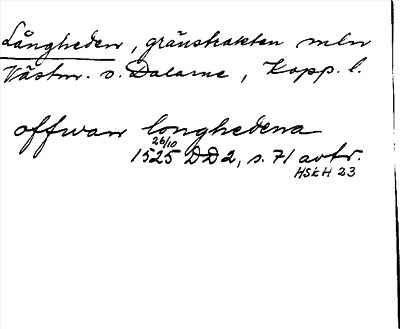 Långheden, gränstrakten mln
Västm. o. Dalarne, Kopp. l.
offwan longhedena
26/10
1525 DD2, s. 71 avtr.
HSkH 23